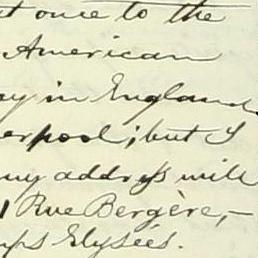 at once to the
American
ay in England
erpool; but I
my address will
1 Rue Bergère, –
mps Elysées.